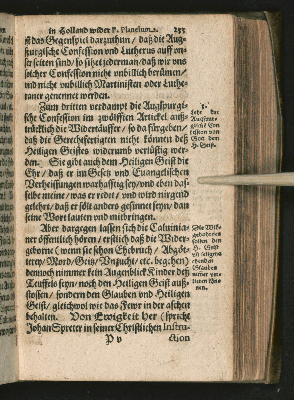 in Holland wider P. Plancium. 233
das Gegenspiel darzuthun / daß die Aug-
spurgische Confession vnd Lutherus auff vnser
seiten sind / so sihet jederman / daß wir vns
solcher Confession nicht vnbillich berümen /
vnd nicht vnbillich Martinisten oder Luthe-
raner genennet werden.
Zum dritten verdampt die Augspurgi-
sche Confession im zwölfften Artickel auß-
trücklich die Widertäuffer / so da fürgeben /
daß die Gerechtfertigten nicht können deß
Heiligen Geistes widerumb verlüstig wer-
den. Sie gibt auch dem Heiligen Geist die
Ehr / daß er im Gesetz vnd Euangelischen
Verheissungen warhafftig sey / vnd eben das-
selbe meine / was er redet / vnd wird nirgend
gelehrt / daß er sölt anders gesinnet seyn / dann
seine Wort lauten vnd mitbringen.
Aber dargegen lassen sich die Caluinia-
ner öffentlich hören / erstlich daß die Wider-
geborne (wenn sie schon Ehebruch / Abgöt-
terey / Mord / Geitz / Vnzucht / etc. begehen)
dennoch nimmer kein Augenblick Kinder deß
Teuffels seyn / noch den Heiligen Geist auß-
stossen / sondern den Glauben vnd Heiligen
Geist / gleichwol wie das Fewr in der aschen
behalten. Von Ewigkeit her (spricht
Johan Spreter in seiner Christlichen Instru-
P v ction
3.
Lehr der
Augspur-
gischē Con-
fession von
Gott dem
H. Geist.
Die Wider-
gebornen
sollen den
H. Geist
vñ
Glauben
nimer ver-
lieren kön-
nen.